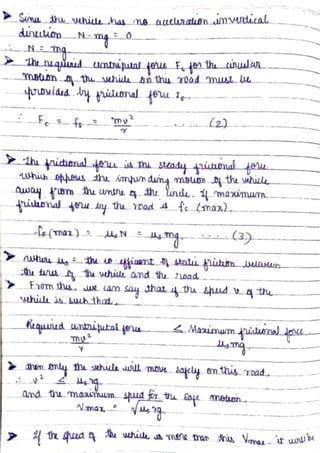 > Since the vehicle has no acceleration in vertical
direction N - mg = 0
∴ N = mg
> The required centripetal force Fc for the circular
motion of the vehicle on this road must be
provided by frictional force fs.
∴ Fc = fs = mv²/r .... (2)
> The frictional force is the steady frictional force
which opposes the impending motion of the vehicle
away from the centre of the circle. If maximum
frictional force by the road is fs (max).
fs (max) = μs N = μs mg .... (3)
> where μs = the co-efficient of static friction between
the tires of the vehicle and the road.
> From this, we can say that if the speed v of the
vehicle is such that,
Required centripetal force ≤ Maximum frictional force
mv²/r μs mg
> then only the vehicle will move safely on this road.
∴ v² ≤ μs rg
and the maximum speed for the safe motion.
Vmax = √μs rg
> If the speed of the vehicle is more than this Vmax. it will be